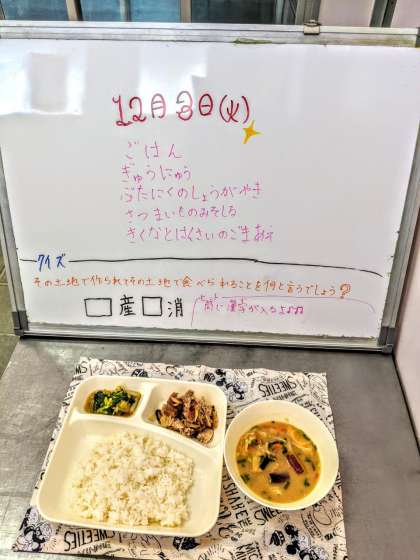 12月3日(火)
ごはん
ぎゅうにゅう
ぶたにくのしょうがやき
さつまいものみそしる
きくなとはくさいのごまあえ
クイズ
その土地で作られてその土地で食べられることを何と言うでしょう?
□産□消
同じ漢字が入るよ♪♪
SWEETIES